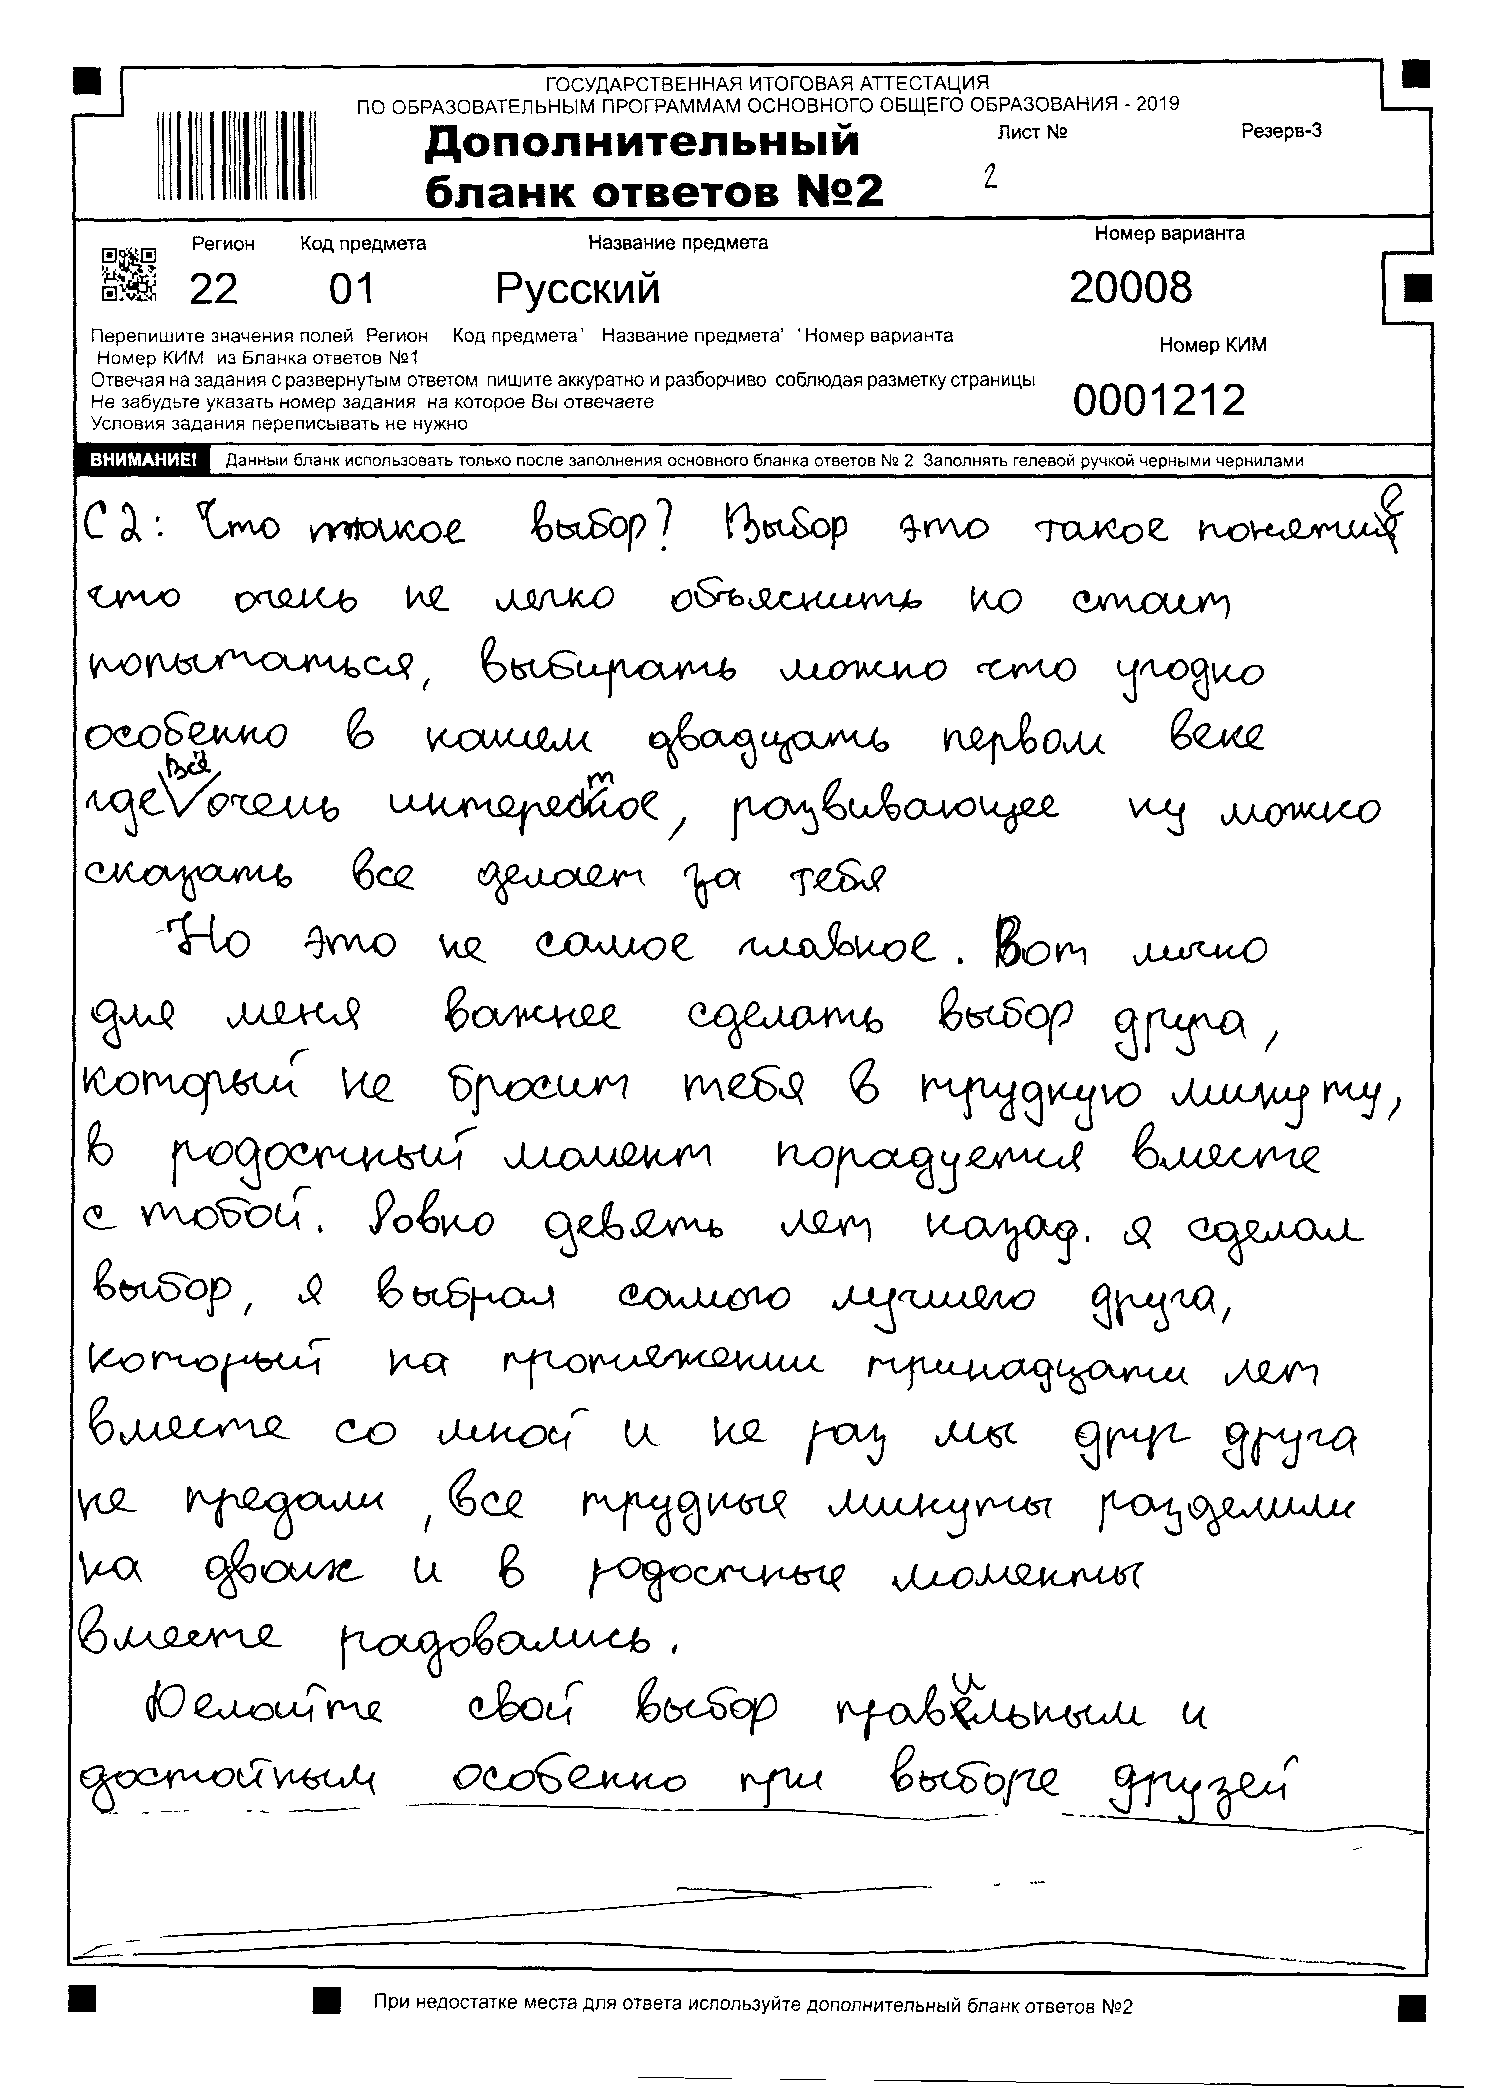 ГОСУДАРСТВЕННАЯ ИТОГОВАЯ АТТЕСТАЦИЯ
ПО ОБРАЗОВАТЕЛЬНЫМ ПРОГРАММАМ ОСНОВНОГО ОБЩЕГО ОБРАЗОВАНИЯ - 2019
Дополнительный
бланк ответов №2
Лист №
Резерв-3
2
Регион
Код предмета
Название предмета
Номер варианта
22
01
Русский
20008
Перепишите значения полей Регион Код предмета' Название предмета' 'Номер варианта
Номер КИМ из Бланка ответов №1
Отвечая на задания с развернутым ответом пишите аккуратно и разборчиво соблюдая разметку страницы
Не забудьте указать номер задания на которое Вы отвечаете
Условия задания переписывать не нужно
Номер КИМ
0001212
ВНИМАНИЕ! Данный бланк использовать только после заполнения основного бланка ответов № 2 Заполнять гелевой ручкой черными чернилами
С2: Что такое выбор? Выбор это такое понятие
что очень не легко объяснить но стоит
попытаться, выбирать можно что угодно
особенно в нашем двадцать первом веке
где всё очень интересное, развивающее ну можно
сказать все делает за тебя
Но это не самое главное. Вот лично
для меня важнее сделать выбор друга,
который не бросит тебя в трудную минуту,
в родостный момент порадуется вместе
с тобой. Ровно девять лет назад. я сделал
выбор, я выбрал самого лучшего друга,
который на протяжении тринадцати лет
вместе со мной и не раз мы друг друга
не предали, все трудные минуты разделили
на двоих и в родостные моменты
вместе радовались.
Делайте свой выбор правильным и
достойным особенно при выборе друзей
При недостатке места для ответа используйте дополнительный бланк ответов №2